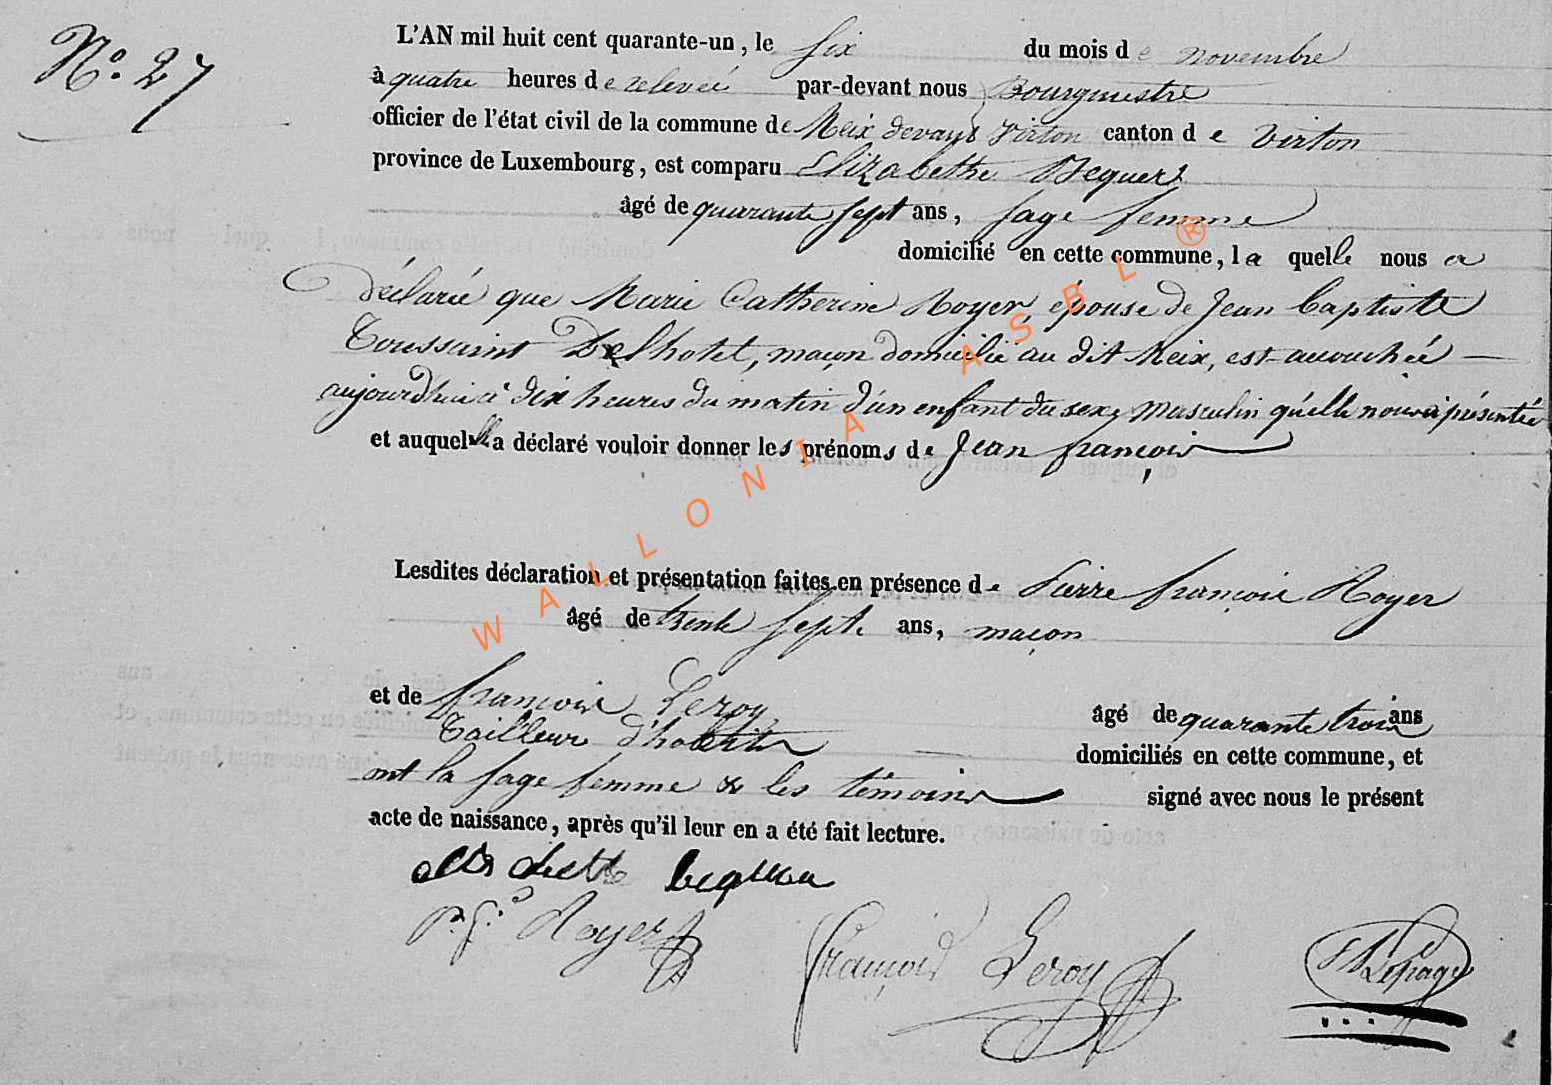 N.o 27
L'AN mil huit cent quarante-un, le six du mois de novembre
à quatre heures de relevée par-devant nous Bourgmestre
officier de l'état civil de la commune de Meix devant Virton canton de Virton
province de Luxembourg, est comparu Elizabethe Bequer
âgé de quarante sept ans, sage femme
domicilié en cette commune, la quelle nous a
déclaré que Marie Catherine Royer, épouse de Jean Baptiste
Toussaint Delhotel, maçon domicilié au dit Meix, est accouchée
aujourdhui à dix heures du matin d'un enfant du sexe masculin qu'elle nous a présenté
et auquel elle a déclaré vouloir donner les prénoms de Jean françois
Lesdites déclaration et présentation faites en présence de Pierre françois Royer
âgé de trente sept ans, maçon
et de françois Leroy âgé de quarante trois ans
Tailleur d'habits domiciliés en cette commune, et
ont la sage femme & les témoins signé avec nous le présent
acte de naissance, après qu'il leur en a été fait lecture.
p. f. Royer
François Leroy
Lepage
WALLONIA ASBL ®